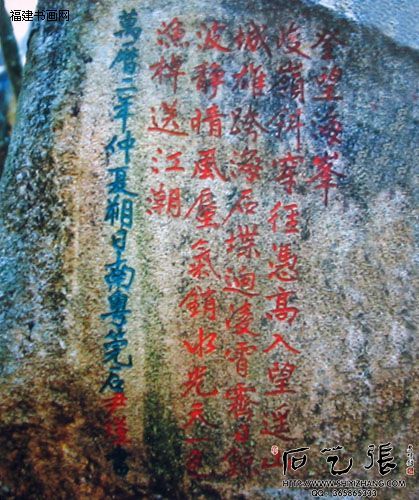 福建书画网
登望海峯
嶺斜穿徑憑高入望遥山
城雄跨海石堞迥凌霄霽日
波靜晴風蜃氣銷水光天一色
漁棹送江潮
萬曆二年仲夏朔日南粤莞石尹瑾書
石艺張
HTTP://WWW.SHIYIZHANG.COM
QQ: 365865733